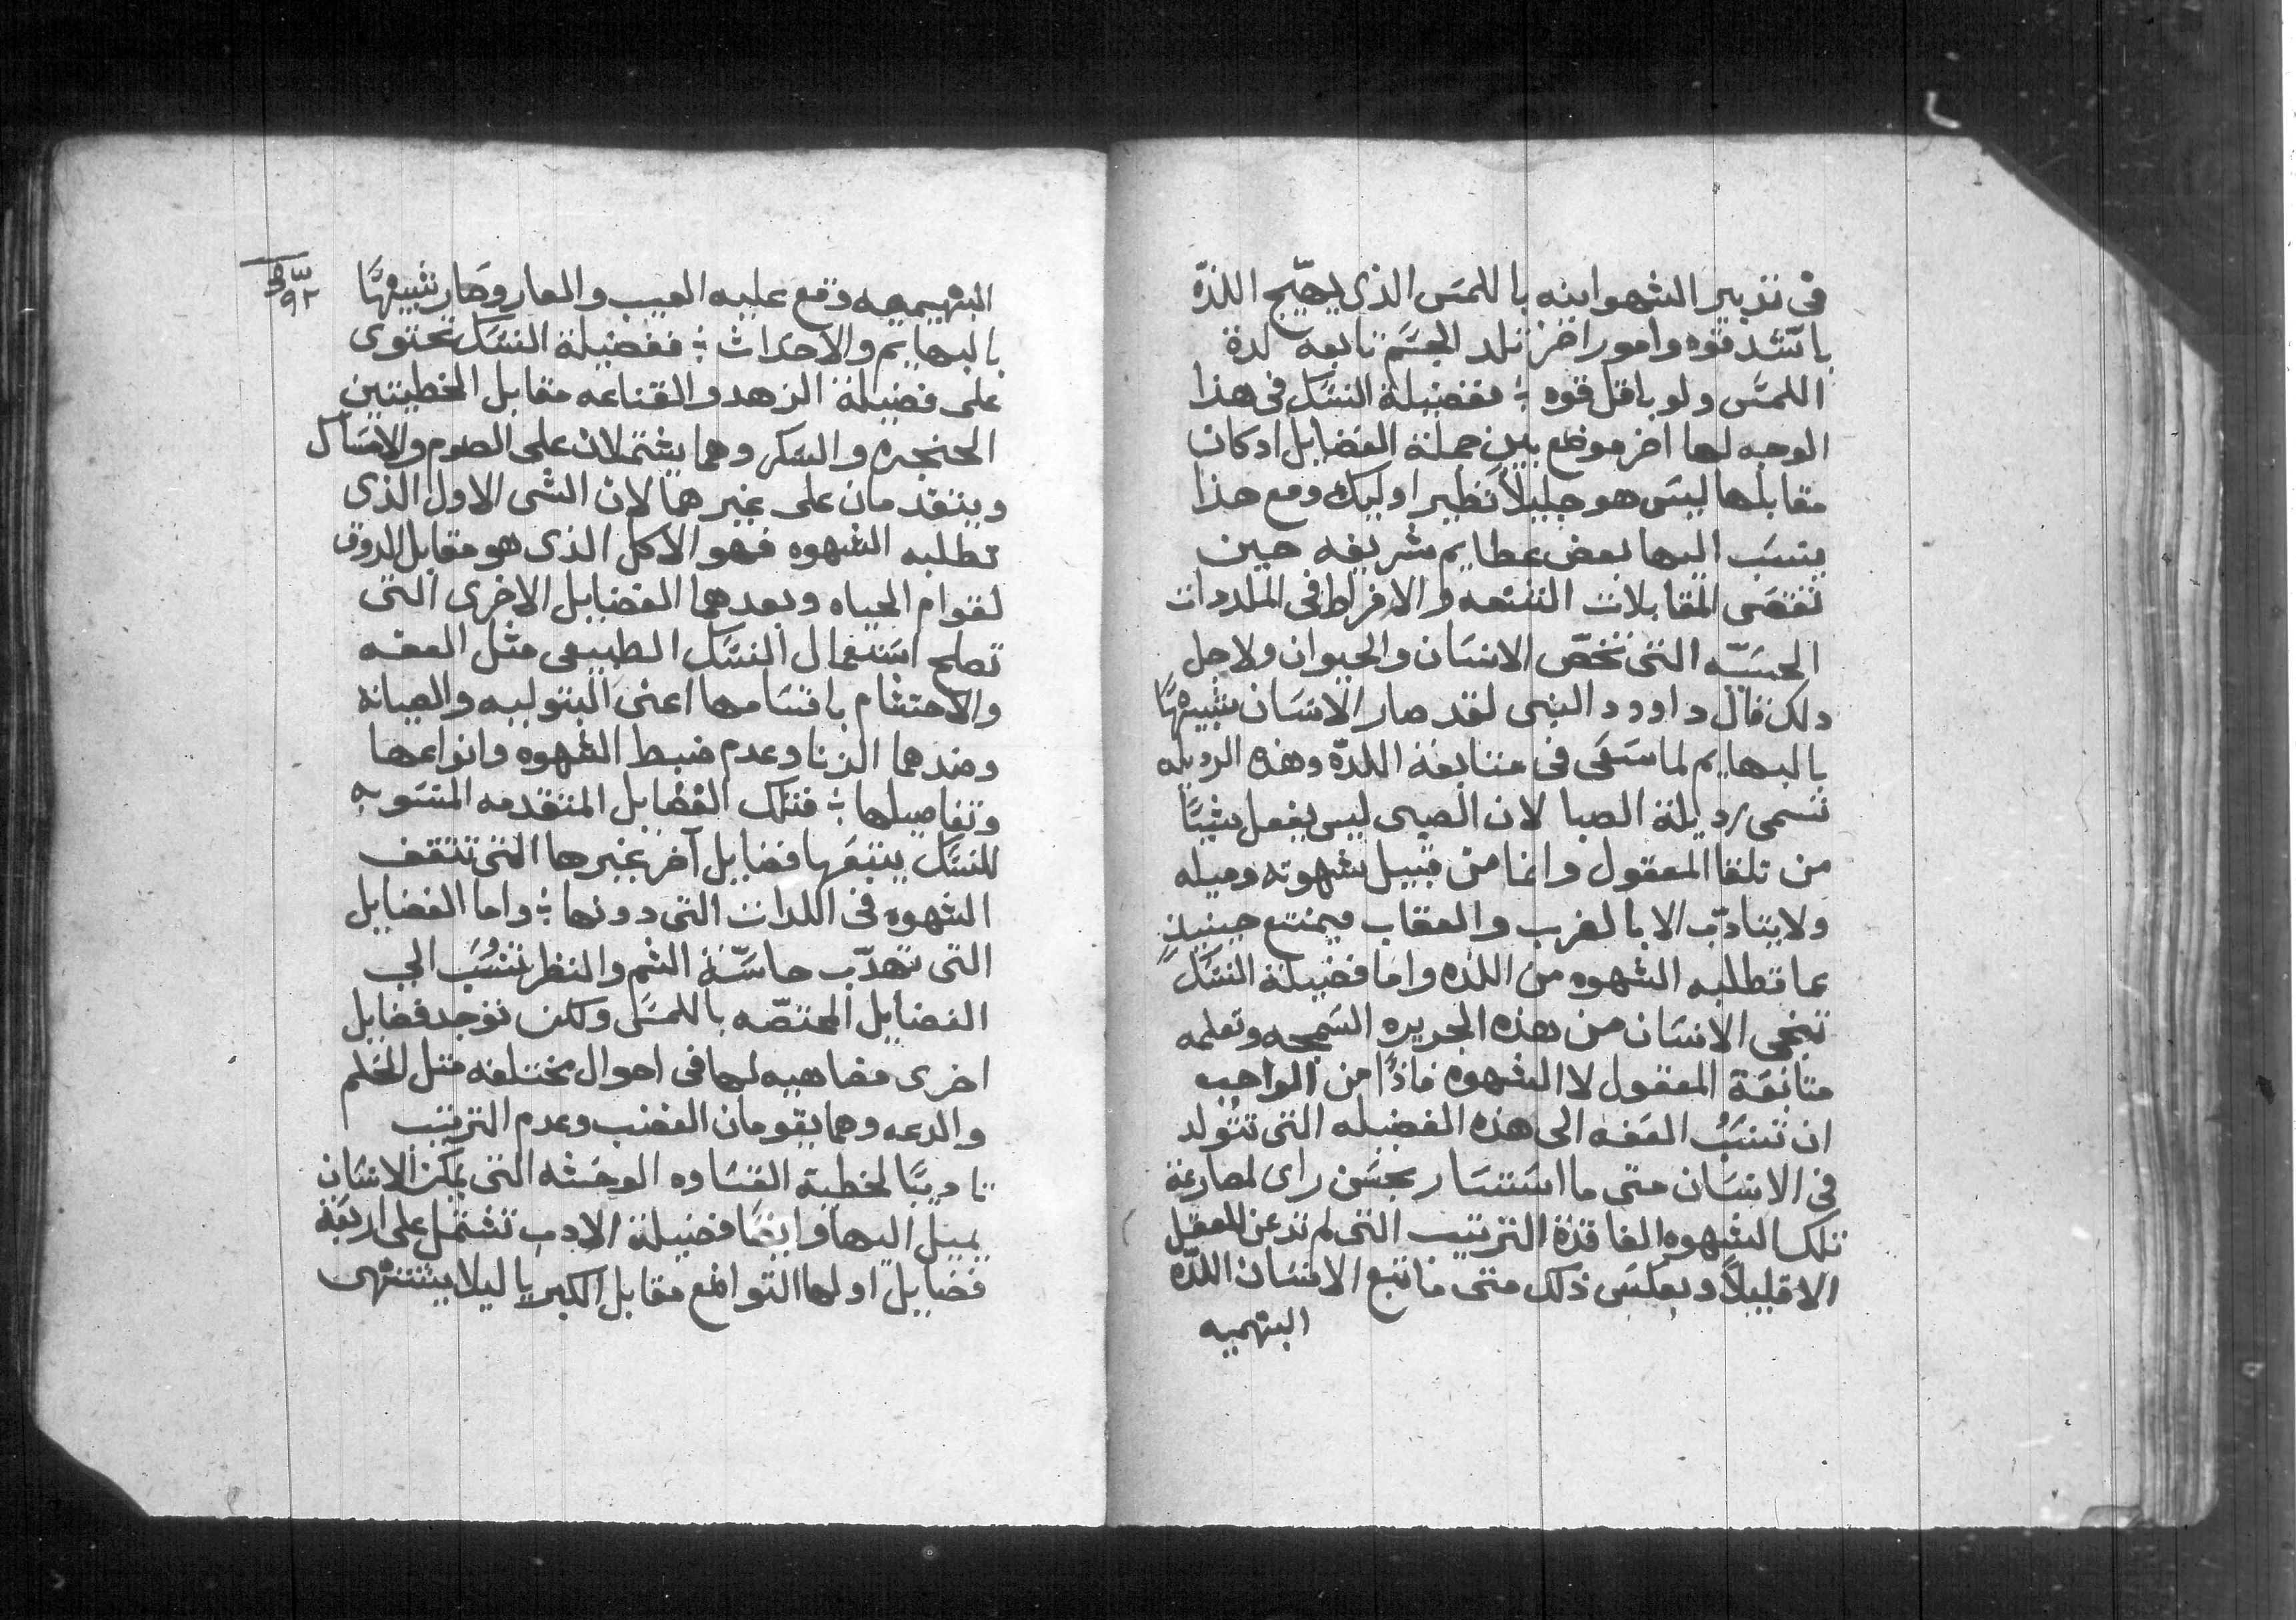 في تدبير الشهوانيه باللمس الذي يهيّج اللذّه
باشد قوه وامور اخر تلد الجسم تابعه لدة
اللمس ولو باقل قوه ÷ ففضيلة النسك في هذا
الوجه لها اخر موضع بين جملة الفضايل اد كان
مقابلها ليس هو جليلاً نظير اوليك ومع هذا
ينسب اليها بعض عظايم شريفه حين
تقصى المقابلات الشنعه والافراط في الملددات
الحسيّه التي تخصّ الانسان والحيوان ولاجل
دلك قال داوود النبي لقد صار الانسان شبيهًا
بالبهايم لما سعى في متابعة اللدّه وهذه الرديله
تسمى رديلة الصبا لان الصبى ليس يفعل شيًا
من تلقا المعقول وانما من قبيل شهوته وميله
ولا يتادّب الا بالضرب والعقاب فيمتنع حينيذٍ
عما تطلبه الشهوه من اللذه واما فضيلة النسك
تنجي الانسان من هذه الجريره السمجه وتعلمه
متابعة المعقول لا الشهوه فاذًا من الواجب
ان تنسب العفه الى هذه الفضيله التي تتولد
في الانسان متى ما استسار بحسن راى لمصارعة
تلك الشهوه الفاقدة الترتيب التي لم تدعن للعقل
الا قليلاً وبعكس ذلك متى ما تبع الانسان اللدّه
البهميه
٩٢
البهيميه وقع عليه العيب والعار وصار شبيهًا
بالبهايم والاحداث ÷ ففضيلة النسك تحتوى
على فضيلة الزهد والقناعه مقابل الخطيتين
الحنجره والسكر وهما يشتملان على الصوم والامساك
ويتقدمان على غيرهما لان الشى الاول الذى
تطلبه الشهوه فهو الاكل الذى هو مقابل الدوق
لقوام الحياه وبعدهما الفضايل الاخرى التي
تصلح استعمال النسك الطبيعى مثل العفه
والاحتشام باقسامها اعنى البتوليه والصيانه
وضدهما الزنا وعدم ضبط الشهوه وانواعها
وتفاصيلها ÷ فتلك الفضايل المتقدمه المنسوبه
للنسك يتبعها فضايل آخر غيرها التي تثقف
الشهوه في اللدات التي دونها ÷ واما الفضايل
التي تهدّب حاسّة الشم والنظر تنسب الى
الفضايل المختصّه باللمس ولكن توجد فضايل
اخرى مضاهيه لها في احوال مختلفه متل الحلم
والدعه وهما يقومان الغضب وعدم الترتيب
تاديبًا لخطية القساوه الوحشه التي يمكن الانسان
يميل اليها وايضًا فضيلة الادب تشتمل على اربعة
فضايل اولها التواضع مقابل الكبريا ليلا يشتهى